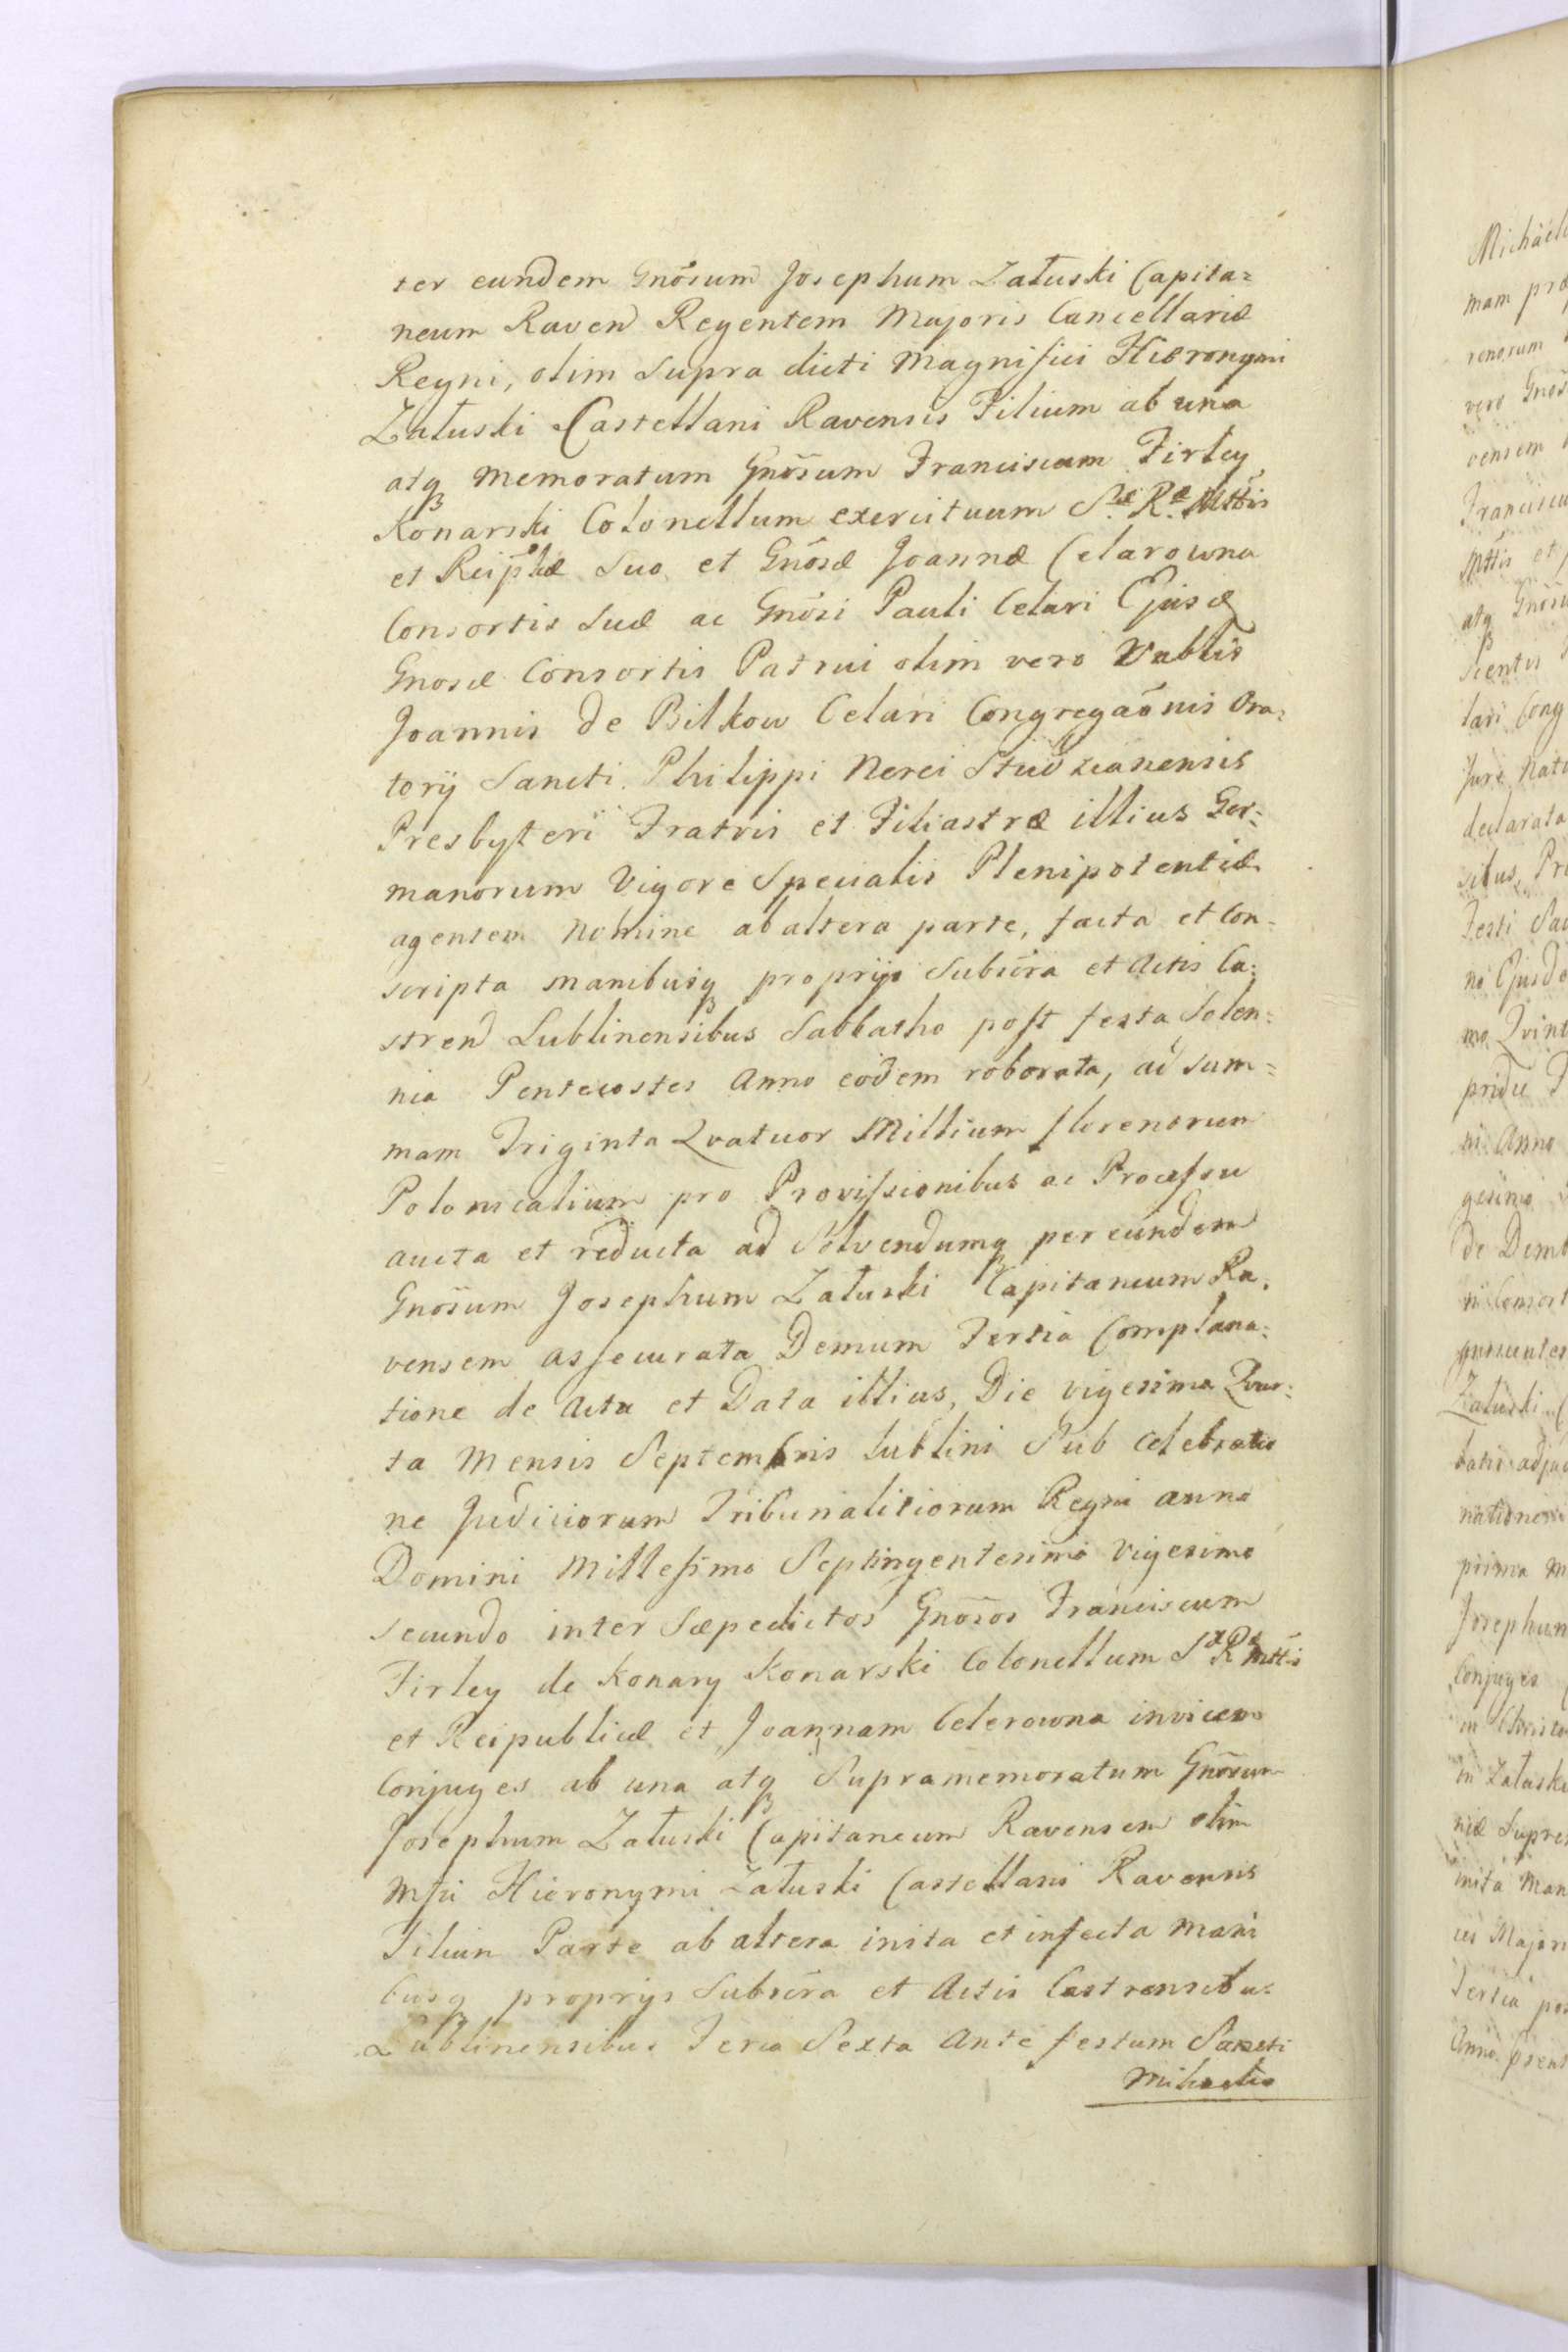 ter eundem Gnõsum Josephum Załuski Capita=
neum Raven Regentem Majoris Cancellariæ
Regni, olim supra dicti Magnifici Hieronymi
Załuski Castellani Ravensis Filium ab una
atqꝫ memoratum Gnõsum Franciscum Firley
Konarski Colonellum exercituum Sæ Ræ Mttis
et Reiplæ Suo et Gnõsæ Joannæ Celarowna
Consortis suæ ac Gnõsi Pauli Celari Ejusd
Gnosæ Consortis Patrui olim vero Vablis
Joannis de Bilkow Celari Congregaõnis Ora=
torij Sancti Philippi Nerei Studzianensis
Presbyteri Fratris et Filiastræ illius Ger=
manorum Vigore Specialis Plenipotentiæ
agentem Nomine ab altera parte, facta et Con=
scripta manibusqꝫ proprijs Subscra et Actis Ca=
stren Lublinensibus Sabbatho post festa Solen=
nia Pentecostes Anno eodem roborata, ad sum=
mam Triginta Qvatuor Millium florenorum
Polonicalium pro Provissionibus ac Processu
aucta et reducta ad Solvendumqꝫ per eundem
Gnõsum Josephum Załuski Capitaneum Ra=
vensem assecurata Demum Tertia Complana=
tione de Actu et Data illius, Die vigesima Qvar=
ta Mensis Septembris Lublini Sub Celebratio
ne Judiciorum Tribunalitiorum Regni anno
Domini Millesimo Septingentesimo Vigesimo
secundo inter Sæpedictos Gnõsos Franciscum
Firley de Konary Konarski Colonellum Sæ Ræ Mttis
et Reipublicæ et Joannam Celerowna invicem
Conjuges ab una atqꝫ Supramemoratum Gnõsum
Josephum Załuski Capitaneum Ravensem olim
Mfci Hieronymi Załuski Castellani Ravensis
Filium Parte ab altera inita et infecta mani
busqꝫ proprijs Subscra et Actis Castrensibus
Lublinensibus Feria Sexta Ante festum Sancti
Mihaelis
Michaël
mam
renorum
vero Gnos
vensem
Franciscu
Mttis et
atqꝫ Gnosu
lari Cong
Jure Natu
declarata
Festi San
no Ejusde
mo Qvint
pridie
ni Anno
gesimo
de Demb
Załuski
prima m
Josephum
Conjuges
in Christo
in Załuski
niæ Supre
inita Man
Tertia pos